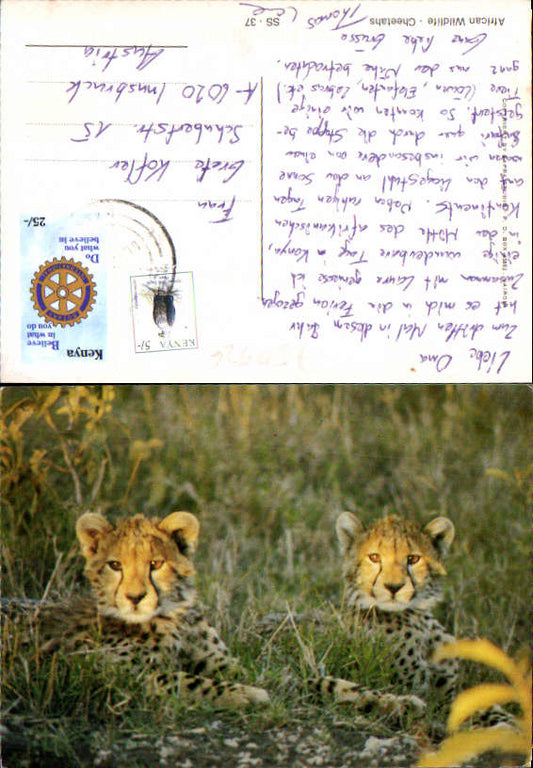 Liebe Oma
Zum dritten Mal in diesem Jahr
hat es mich in die Ferien gezogen.
Zusammen mit Laura geniesse ich
einige wunderbare Tage in Kenya,
in der Mitte des afrikanischen
Kontinents. Neben ruhigen Tagen
auf den Liegestühl an der Sonne
waren wir insbesondere an einer
Safari quer durch die Steppe be-
geistert. So konnten wir einige
Tiere (Löwen, Elefanten, Zebras etc)
ganz aus der Nähe betrachten.
Ganz liebe Grüsse
Thomas
African Wildlife - Cheetahs
SS - 37
KENYA 5/-
Kenya
Believe
in what
you do
Do
what you
believe in
25/-
Frau
Grete Kofler
Schubertstr. 15
A-6020 Innsbruck
Austria